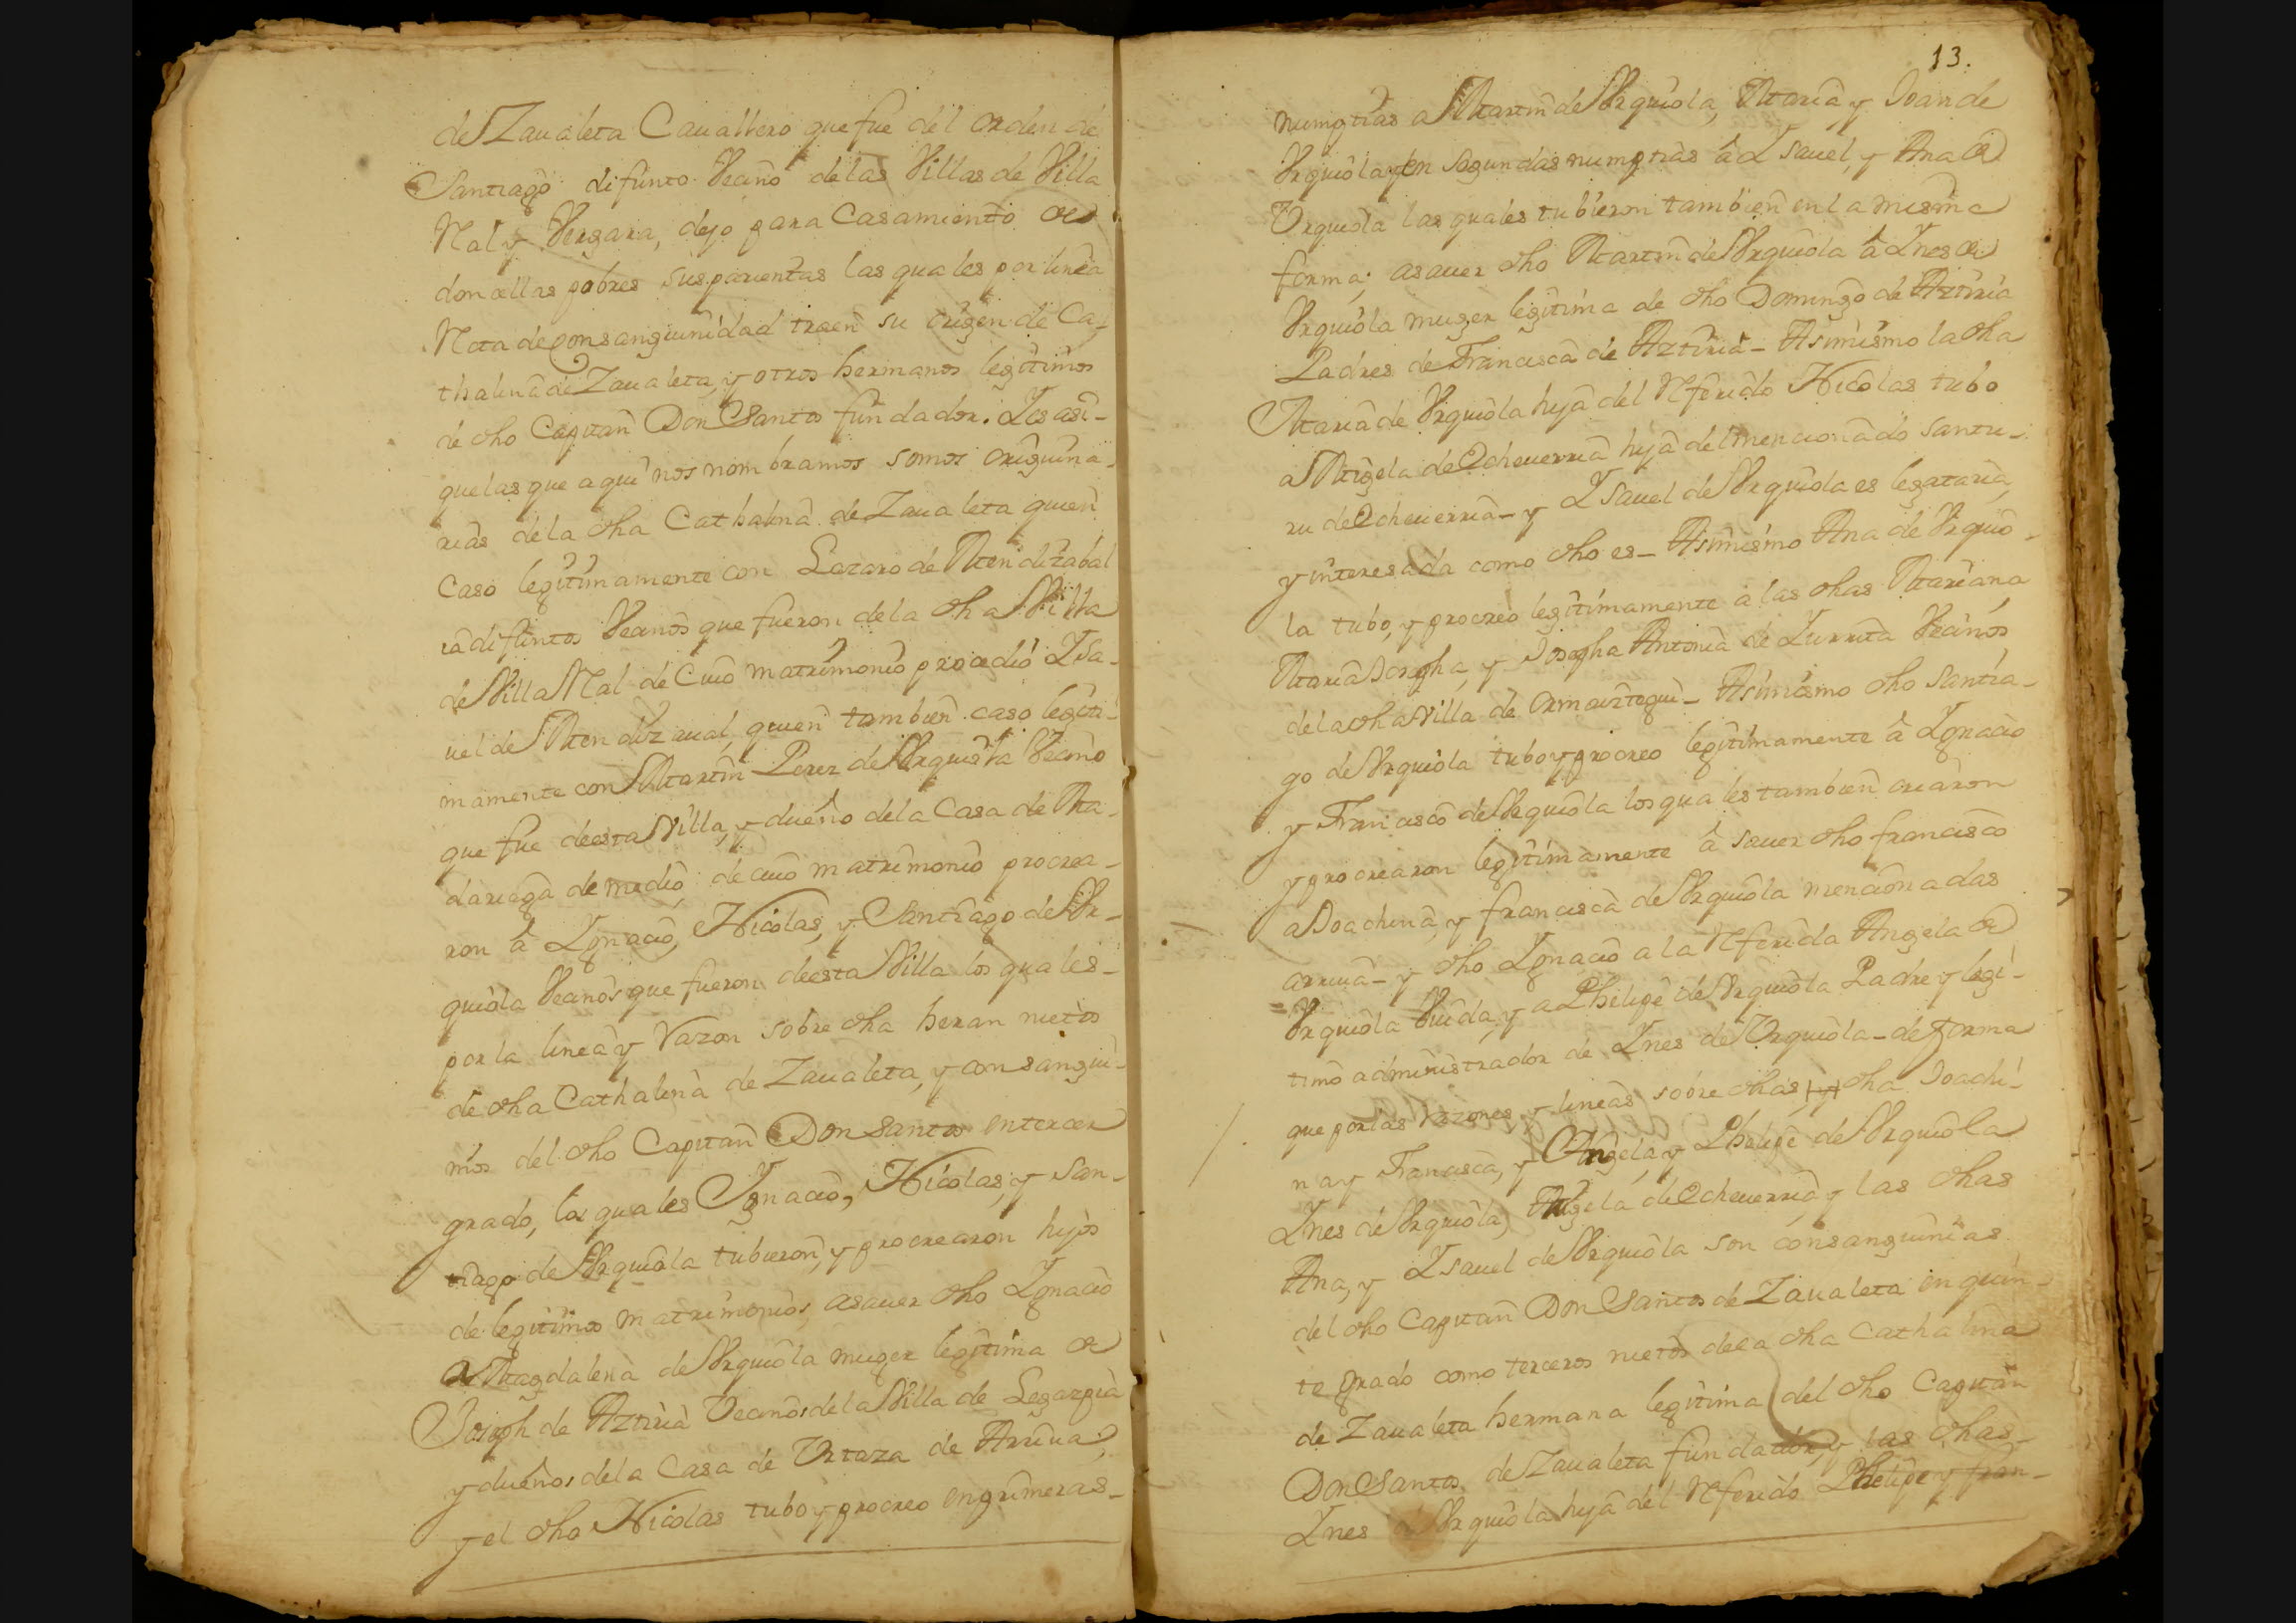 de Zaualeta Cauallero que fue del orden de
Santiago difunto Vecino de las Villas de Villa
Real y Vergara, dejo para Casamiento de
doncellas pobres sus parientas las quales por linea
Recta de Consanguinidad traen su origen de Ca-
thalina de Zaualeta, y otros hermanos legitimos
de dho Capitan Don Santos fundador. Y es asi-
que las que aqui nos nombramos somos origuina-
rias de la dha Cathalina de Zaualeta quien
Caso legitimamente con Lazaro de Mendizabal
ia difuntos Vecinos que fueron de la dha Villa
de Villa Real de Cuio matrimonio procedió Ysa-
uel de Mendizaual, quien tambien caso legiti-
mamente con Martin Perez de Vrquiola Vecino
que fue de esta Villa, y dueño de la Casa de Ma-
dariaga de medio de cuio matrimonio procrea-
ron â Ygnacio, Nicolas, y Santiago de Vr-
quiola Vecinos que fueron de esta Villa los quales-
por la linea y Razon sobre dha heran nietos
de dha Cathalina de Zaualeta, y consangui-
nios del dho Capitan Don Santos en tercer
grado, los quales Ygnacio, Nicolas, y San-
tiago de Vrquiola tubieron, y procrearon hijos
de legitimos matrimonios, asauer dho Ygnacio
a Magdalena de Vrquiola muger legitima de
Joseph de Aztiria Vecinos de la Villa de Legazpia
y dueños de la Casa de Vrtaza de Arriua,
y el dho Nicolas tubo y procreo en primeras-
13.
numptias a Martin de Vrquiola, Maria y Joan de
Vrquiola y en segundas numptias â Ysauel, y Ana de
Vrquiola las quales tubieron tambien en la misma
forma; asauer dho Martin de Vrquiola â Ynes de
Vrquiola muger legitima de dho Domingo de Aztiria
Padres de Francisca de Aztiria- Asimismo la dha
Maria de Vrquiola hija del Referido Nicolas tubo
a Migela de Echeuerria hija del mencionado Santu-
ru de Echeuerria- y Ysauel de Vrquiola es legataria,
y interesada como dho es- Asimismo Ana de Vrquio-
la tubo, y procreo legitimamente a las dhas Mariana
Maria Josepha, y Josepha Antonia de Yurrita Vecinos
de la dha Villa de Ormaiztegui- Asimismo dho Santia-
go de Vrquiola tubo y procreo legitimamente â Ygnacio
y Francisco de Vrquiola los quales tambien criaron
y procrearon legitimamente â sauer dho francisco
a Joachina, y francisca de Vrquiola mencionadas
arriua- y dho Ygnacio a la Referida Angela de
Vrquiola Viuda, y a Phelipe de Vrquiola Padre y legi-
timo administrador de Ynes de Vrquiola- de forma
que por las razones, y lineas sobre dhas, y dha Joachi-
na y Francisca, y Angela, y Phelipe de Vrquiola
Ynes de Vrquiola, Migela de Echeuerria, y las dhas
Ana, y Ysauel de Vrquiola son consanguinias
del dho Capitan Don Santos de Zaualeta en quin-
to grado como terceros nietos de la dha Cathalina
de Zaualeta hermana legitima del dho Capitan
Don Santos de Zaualeta fundador, y las dhas-
Ynes de Vrquiola hija del Referido Phelipe y fran-